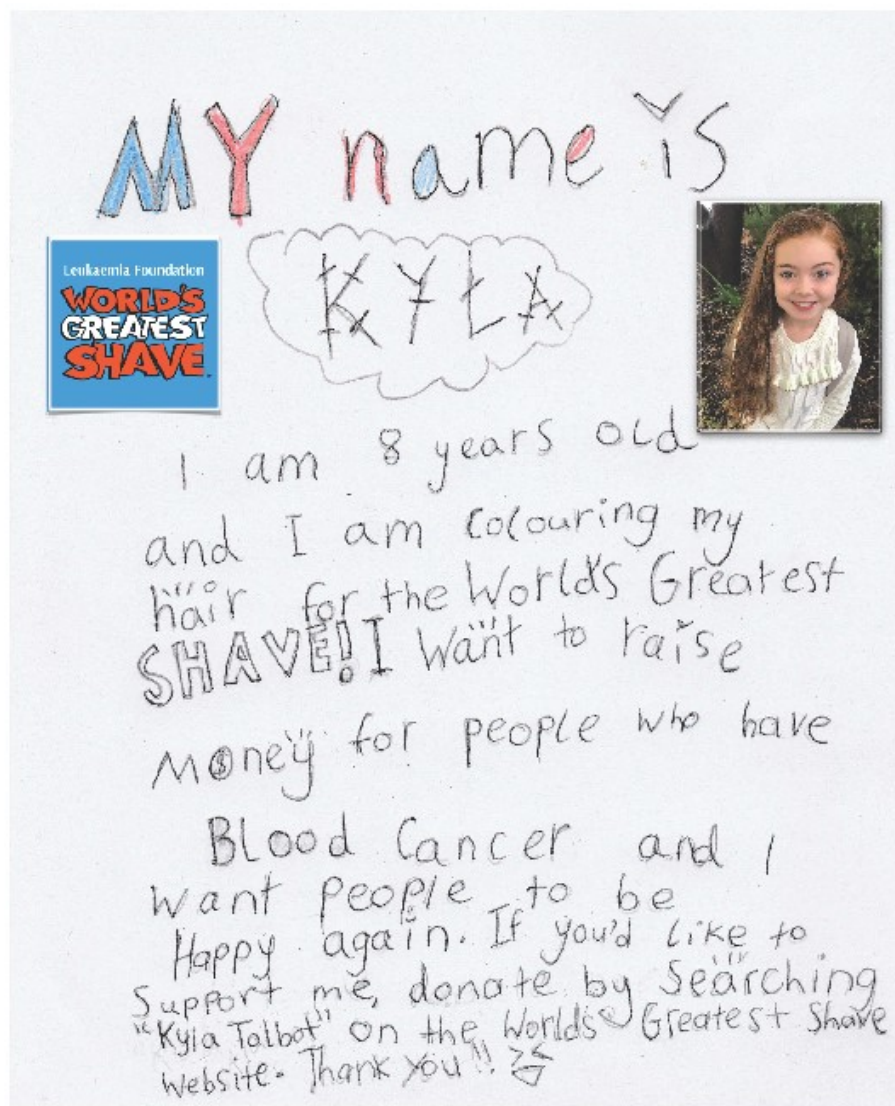 MY name is
Leukaemia Foundation
WORLD'S
GREATEST
SHAVE
KYLA
I am 8 years old
and I am colouring my
hair for the World's Greatest
SHAVE! I want to raise
money for people who have
Blood Cancer and I
want people to be
Happy again. If you'd like to
Support me, donate by Searching
"Kyla Talbot" on the World's Greatest Shave
website. Thank you!!